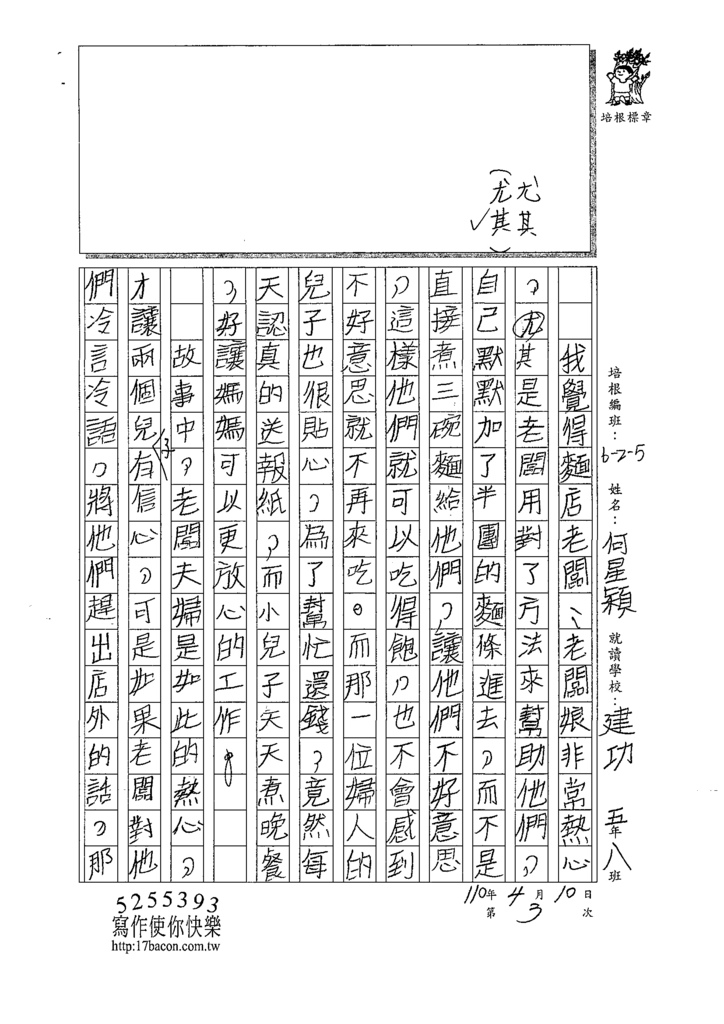 培根標章
尤尤
其其
培根編班：6-2-5 姓名：何星穎 就讀學校：建功 五年八班
110年4月10日
第3次
我覺得麵店老闆、老闆娘非常熱心
，尤其是老闆用對了方法來幫助他們，
自己默默加了半團的麵條進去，而不是
直接煮三碗麵給他們，讓他們不好意思
，這樣他們就可以吃得飽，也不會感到
不好意思就不再來吃。而那一位婦人的
兒子也很貼心，為了幫忙還錢，竟然每
天認真的送報紙，而小兒子天天煮晚餐
，好讓媽媽可以更放心的工作。
故事中，老闆夫婦是如此的熱心，
才讓兩個兒仔有信心，可是如果老闆對他
們冷言冷語，將他們趕出店外的話，那
5255393
寫作使你快樂
http:17bacon.com.tw